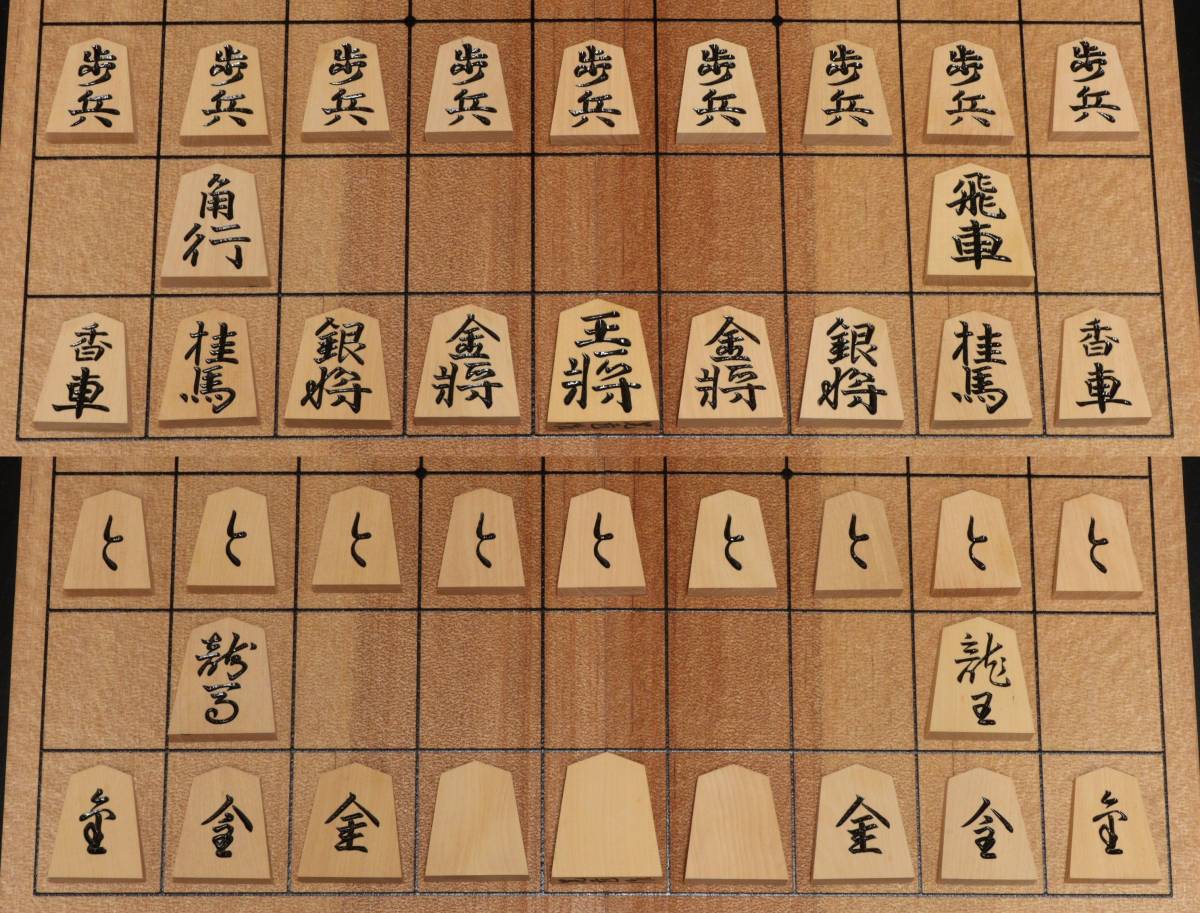 歩兵 歩兵 歩兵 歩兵 歩兵 歩兵 歩兵 歩兵 歩兵
角行 飛車
香車 桂馬 銀将 金将 王将 金将 銀将 桂馬 香車
と と と と と と と と と
龍馬 龍王
金 金 金 金 金 金